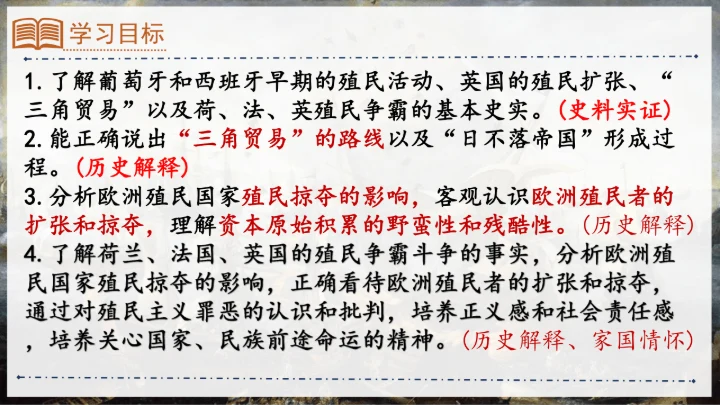 学习目标
1.了解葡萄牙和西班牙早期的殖民活动、英国的殖民扩张、“
三角贸易”以及荷、法、英殖民争霸的基本史实。(史料实证)
2.能正确说出“三角贸易”的路线以及“日不落帝国”形成过
程。(历史解释)
3.分析欧洲殖民国家殖民掠夺的影响，客观认识欧洲殖民者的
扩张和掠夺，理解资本原始积累的野蛮性和残酷性。(历史解释)
4.了解荷兰、法国、英国的殖民争霸斗争的事实，分析欧洲殖
民国家殖民掠夺的影响，正确看待欧洲殖民者的扩张和掠夺，
通过对殖民主义罪恶的认识和批判，培养正义感和社会责任感
，培养关心国家、民族前途命运的精神。(历史解释、家国情怀)